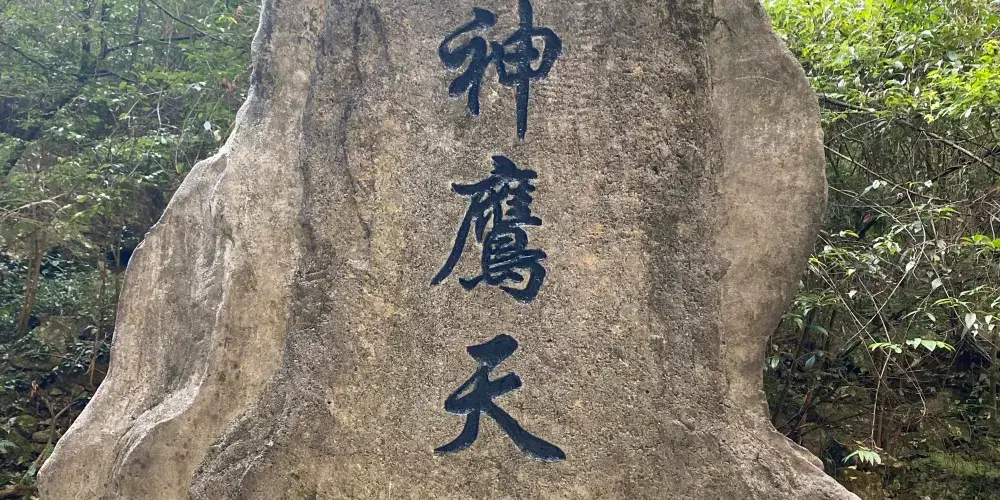 神鹰天